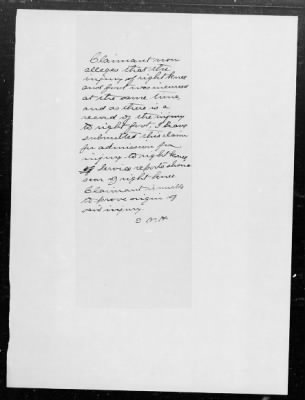 Claimant now
alleges that the
injury of right knee
and foot was incurred
at the same time
and as there is a
record of the injury
to right foot, I have
submitted this claim
for admission for
injury to right knee
Service reports show
scar of right knee
Claimant unable
to prove origin of
said injury.